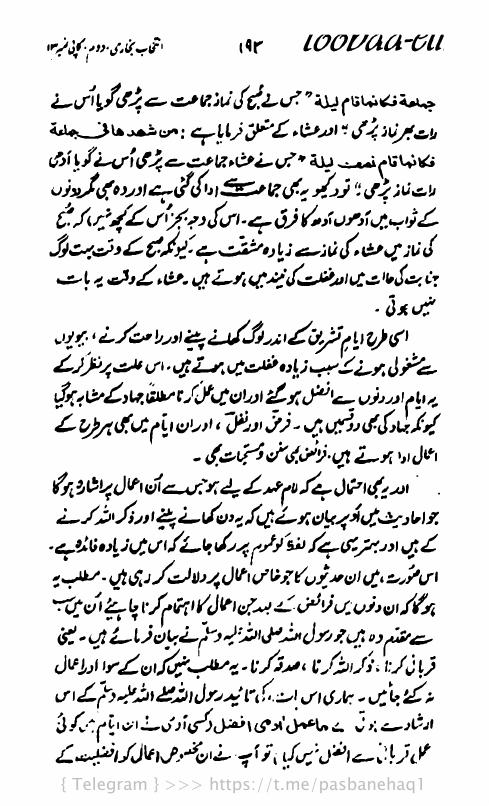 انتخاب بخاری، دوم، کاپی نمبر ۱۳ ۱۹۳ toobaa-eli
جماعة فكانما قام ليلة ”جس نے صبح کی نماز جماعت سے پڑھی گویا اُس نے
رات بھر نماز پڑھی“ اور عشاء کے متعلق فرمایا ہے : من شهد هافى جماعة
فكانما قام نصف ليلة ”جس نے عشاء جماعت سے پڑھی اُس نے گویا آدھی
رات نماز پڑھی“ تو دیکھو یہ بھی جماعت سے ادا کی گئی ہے اور وہ بھی مگر دونوں
کے ثواب میں آدھوں آدھ کا فرق ہے۔ اس کی وجہ بجز اُس کے کچھ نہیں، کہ صبح
کی نماز میں عشاء کی نماز سے زیادہ مشقت ہے۔ کیونکہ صبح کے وقت بہت لوگ
جنابت کی حالت میں اور غفلت کی نیند میں ہوتے ہیں۔ عشاء کے وقت یہ بات
نہیں ہوتی۔
اسی طرح ایام تشریق کے اندر لوگ کھانے پینے اور راحت کرنے، بیویوں
سے مشغولی ہونے کے سبب زیادہ غفلت میں ہوتے ہیں۔ اس علت پر نظر کر کے
یہ ایام اور دنوں سے افضل ہو گئے اور ان میں عمل کرنا مطلقاً جہاد کے مشابہ ہو گیا
کیونکہ جہاد کی بھی دو قسمیں ہیں۔ فرض اور نفل، اور ان ایام میں بھی ہر طرح کے
اعمال ادا ہوتے ہیں۔ فرائض بھی سنن و مستحبات بھی۔
اور یہ بھی احتمال ہے کہ لام عہد کے لیے ہو جس سے اُن اعمال پر اشارہ ہوگا
جو احادیث میں اُوپر بیان ہوئے ہیں کہ یہ دن کھانے پینے اور ذکر اللہ کرنے
کے ہیں اور بہتر یہی ہے کہ لفظ کو عموم پر رکھا جائے کہ اس میں زیادہ فائدہ ہے۔
اس صورت میں ان حدیثوں کا جو خاص اعمال پر دلالت کر رہی ہیں۔ مطلب یہ
ہوگا کہ ان دنوں میں فرائض کے بعد جن اعمال کا اہتمام کرنا چاہیئے اُن میں سب
سے مقدم وہ ہیں جو رسول اللہ صلی اللہ علیہ وسلم نے بیان فرمائے ہیں۔ یعنی
قربانی کرنا، ذکر اللہ کرنا، صدقہ کرنا۔ یہ مطلب نہیں کہ ان کے سوا اور اعمال
نہ کئے جائیں۔ ہماری اس بات کی تائید رسول اللہ صلے اللہ علیہ وسلم کے اس
ارشاد سے ہوتی ہے ما عمل آدمی افضل کسی آدمی نے ان ایام میں کوئی
عمل قربانی سے افضل نہیں کیا، تو آپ نے ان مخصوص اعمال کو افضلیت کے
{ Telegram } >>> https://t.me/pasbanehaq1